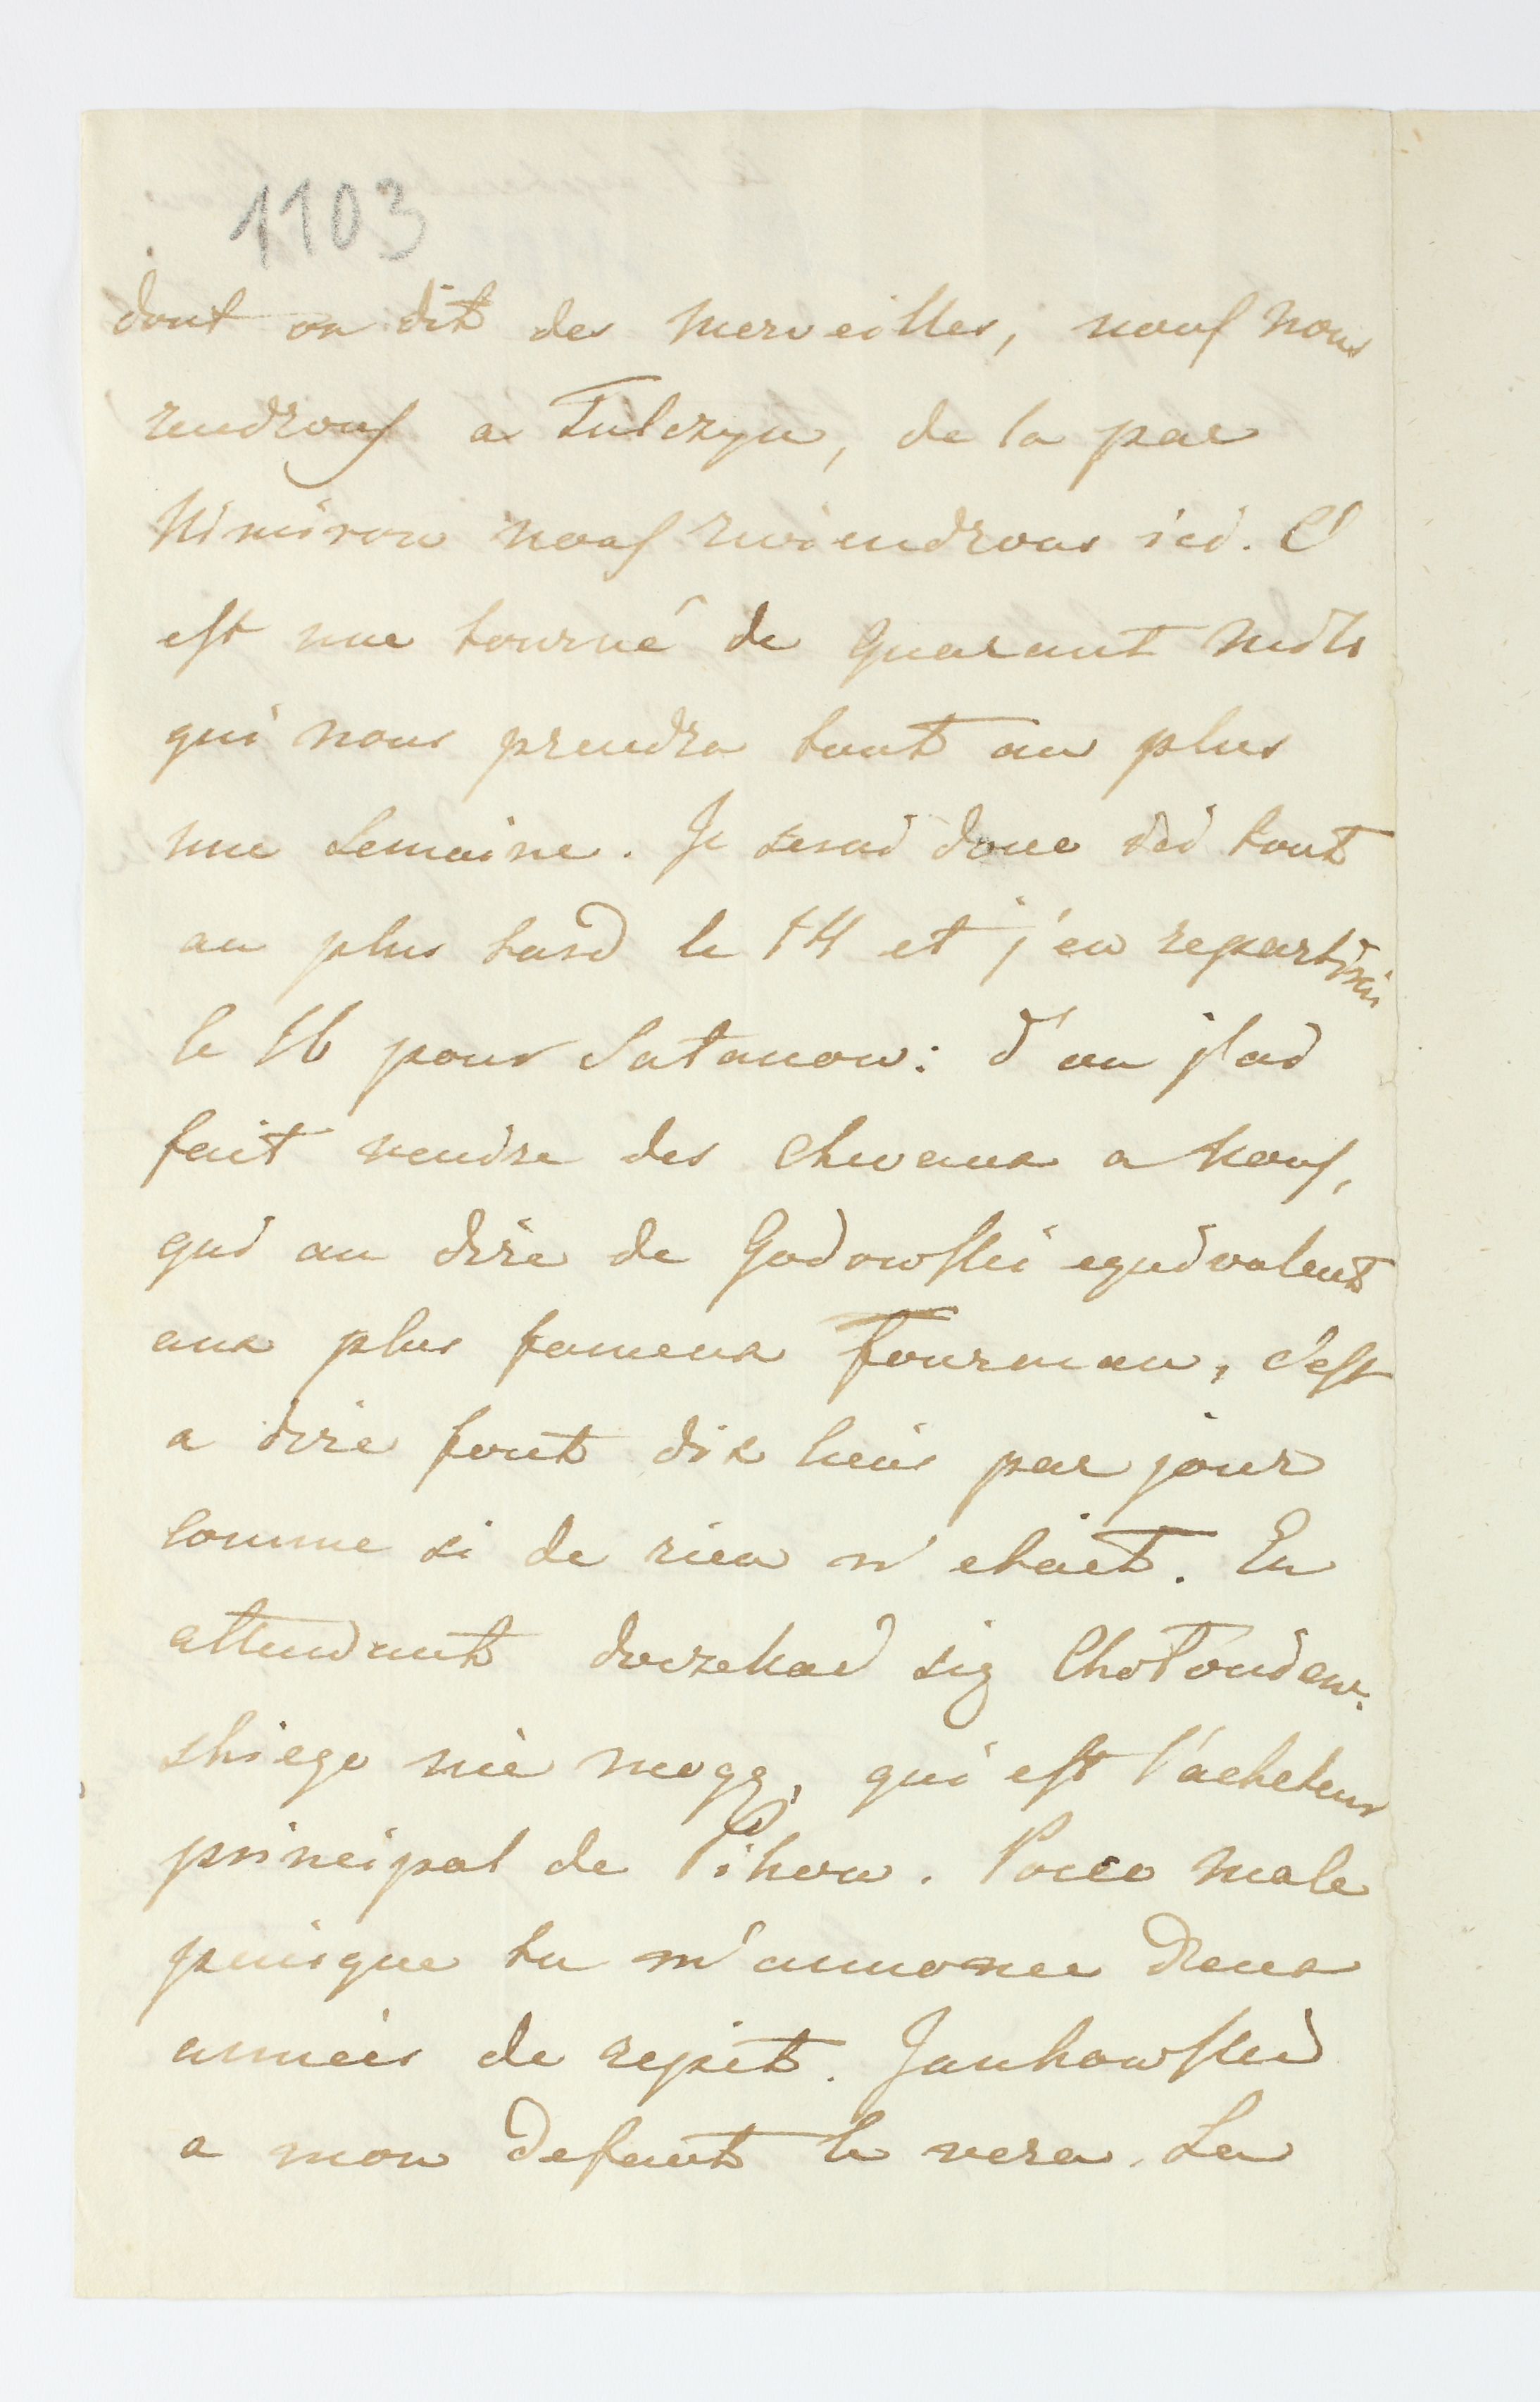 1103
dont on dit des merveilles, nous nous
rendrons a Tulczyn, de la par
Nimirow nous reviendrons ici. C'
est une tourné de quarant mils
qui nous prendra tout au plus
une semaine. Je serai donc ici tout
au plus tard le 14 et j'en repartirai
le 16 pour Satanow: d'ou j'ai
fait vendre des chevaux a nous,
qui au dire de Godowski equivalent
aux plus fameux Fourman, c'est
a dire font dix lieus par jour
comme si de rien n'etait. En
attendant doczekać się Chołoniew-
skiego nie mogę, qui est l'acheteur
principal de Pikow. Poco male
puisque tu m'annonce deux
annéés de repit. Jankowski
a mon defaut le vera. La